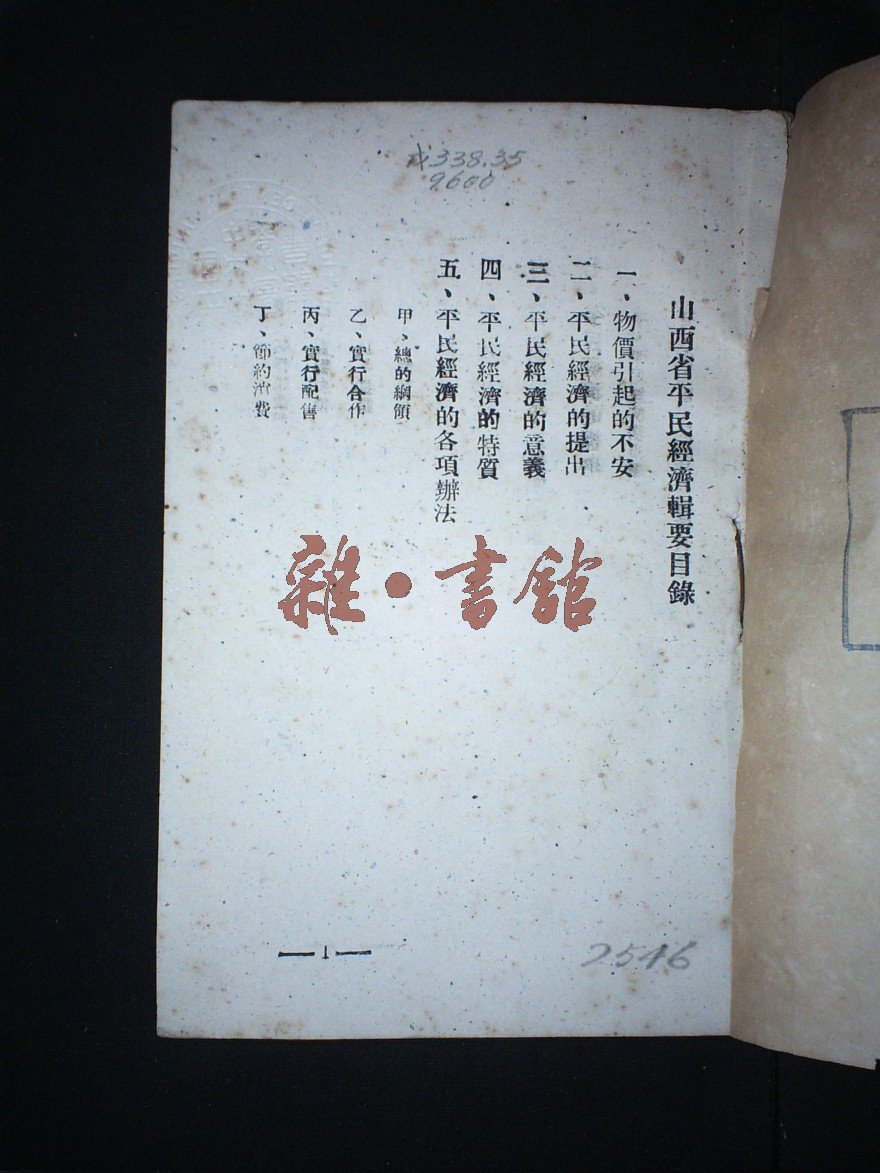 338.35
9600
山西省平民經濟輯要目錄
一、物價引起的不安
二、平民經濟的提出
三、平民經濟的意義
四、平民經濟的特質
五、平民經濟的各項辦法
甲、總的綱領
乙、實行合作
丙、實行配售
丁、節約消費
雜·書館
—1—
2546